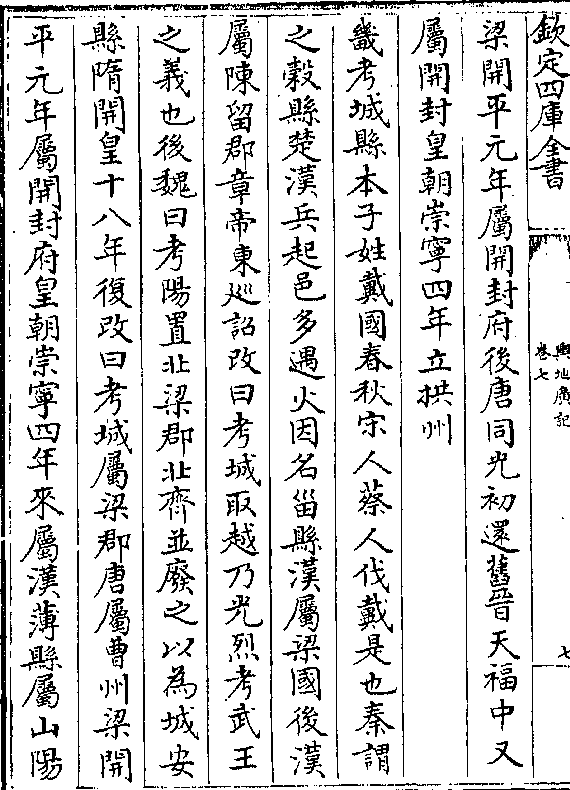 欽定四庫全書
輿地廣記
卷七
七
梁開平元年屬開封府後唐同光初還舊晉天福中又
屬開封皇朝崇寧四年立拱州
畿考城縣本子姓戴國春秋宋人蔡人伐戴是也秦謂
之穀縣楚漢兵起邑多遇火因名甾縣漢屬梁國後漢
屬陳留郡章帝東廵詔改曰考城取越乃光烈考武王
之義也後魏曰考陽置北梁郡北齊並廢之以為城安
縣隋開皇十八年復改曰考城屬梁郡唐屬曹州梁開
平元年屬開封府皇朝崇寧四年來屬漢薄縣屬山陽